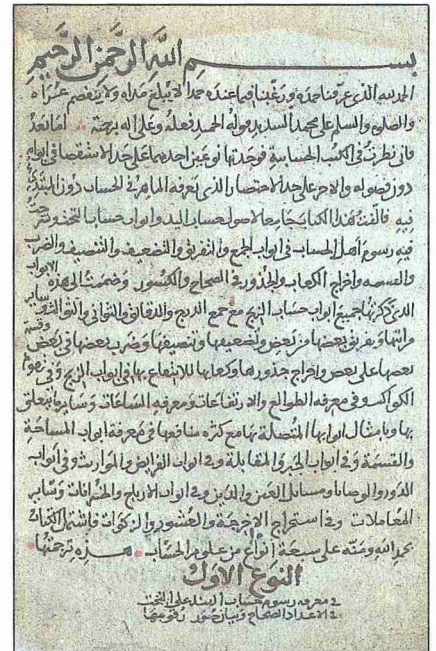 بسم الله الرحمن الرحيم
الحمد لله الذي عرفنا حمده ورغبنا فيما عنده حمدا لا يبلغ مداه ولا ينفصم عراه
والصلوة والسلم على محمد السديد قوله الحميد فعله وعلى اله برحمته اما بعد
فاني نظرت في الكتب الحسابية فوجدتها نوعين احدهما على حد الاستقصا في ابوابه
دون فصوله والاخر على حد الاختصار الذي يعرفه الماهر في الحساب دون المبتدي
فيه فالفت هذا الكتاب جامعا لاصول حساب اليد وابواب حساب التخت وشرحت
فيه رسوم اهل الحساب في ابواب الجمع والتفريق والتضعيف والتنصيف والضرب
والقسمه واخراج الكعاب والجذور في الصحاح والكسور وضممت الى هذه الابواب
الذي ذكرتها جميع ابواب حساب الزيج مع جمع الدرج والدقائق والثواني والثوالث وساير
مراتبها وتفريق بعضها من بعض وتضعيفها وتنصيفها وضرب بعضها في بعض وقسمة
بعضها على بعض واخراج جذورها وكعابها للانتفاع بها في ابواب الزيج وفي تقويم
الكواكب وفي معرفه الطوالع والارتفاعات ومعرفه المساعات وساير ما يتعلق
بها وبامثال ابوابها المتصلة بها مع كثرة منافعها في معرفة ابواب المساحة
والقسمة وفي ابواب الجبر والمقابلة وفي ابواب الفرائض والمواريث وفي ابواب
الدور والوصايا ومسائل العين والدين وفي ابواب الارباح والخسرانات وساير
المعاملات وفي استخراج الاخرجة والعشور والزكوات فاشتمل الكتاب
بحمد الله ومنه على سبعة انواع من علوم الحساب هذه ترجمتها
النوع الاول
في معرفه رسوم حساب الهند على التخت
في الاعداد الصحاح وبيان صور رقومها